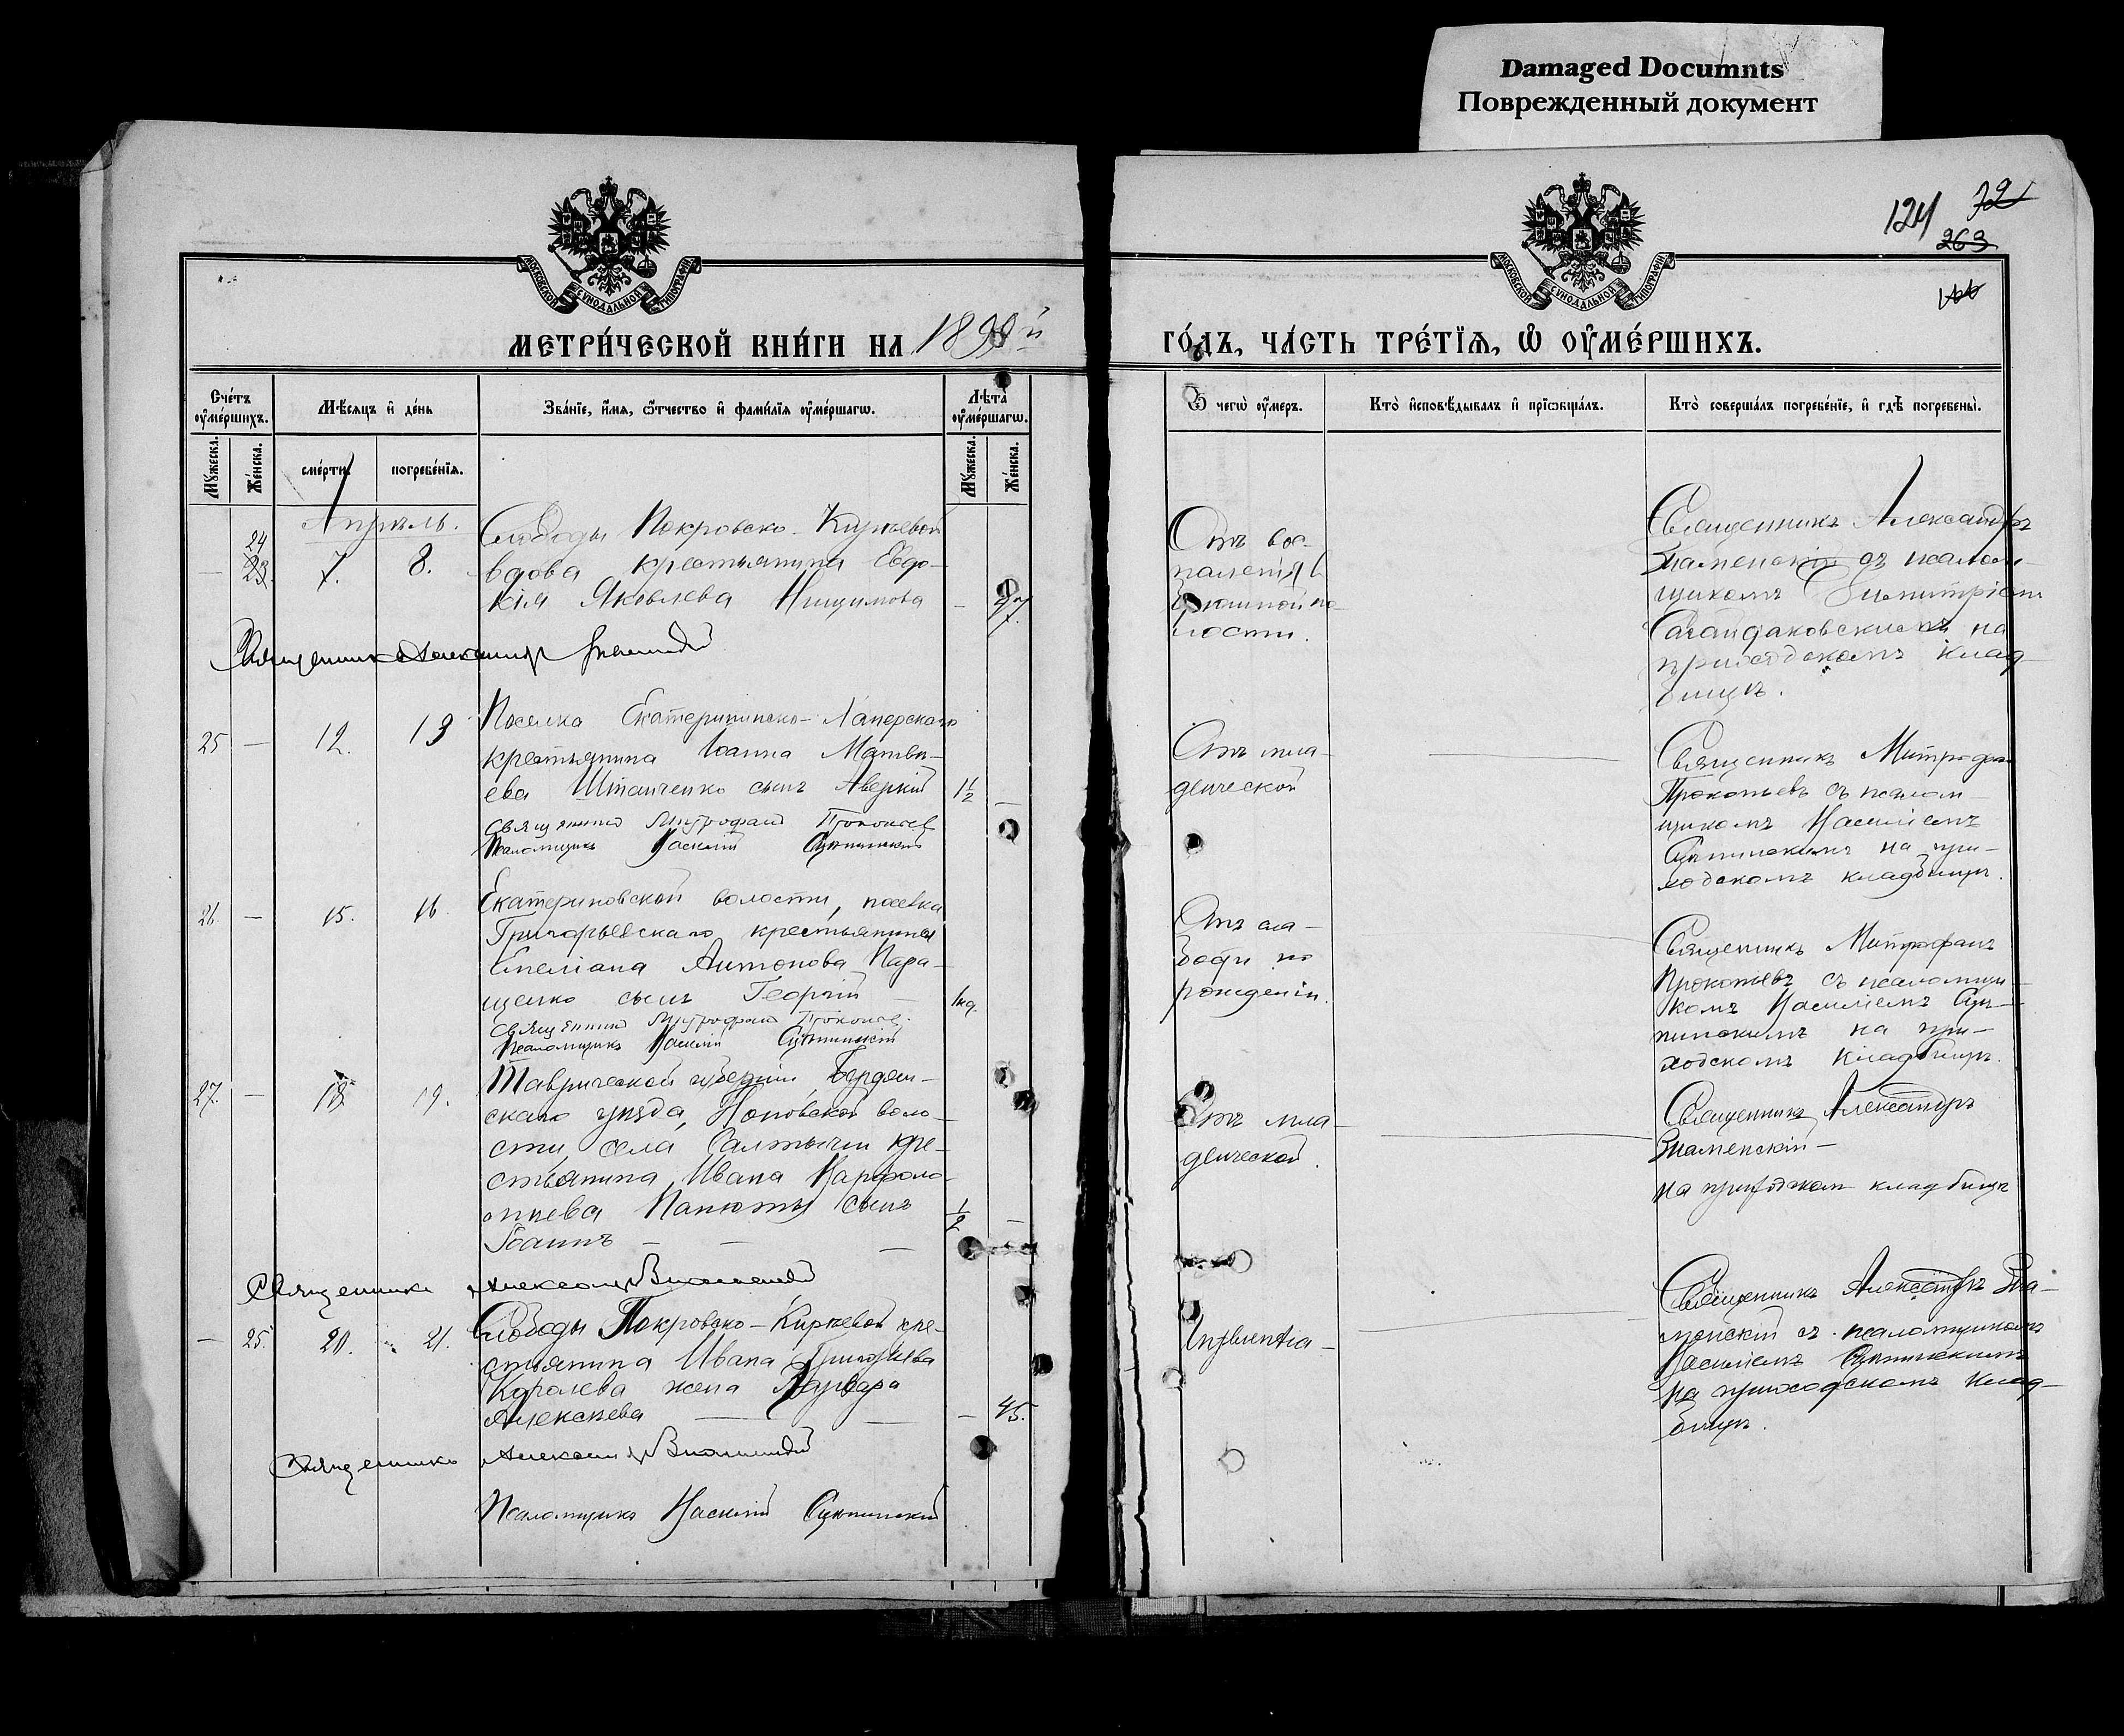 Damaged Documnts
Поврежденный документ
124 72
263
МОСКОВСКОЙ СѴНОДАЛЬНОЙ ТИПОГРАФІИ
МОСКОВСКОЙ СѴНОДАЛЬНОЙ ТИПОГРАФІИ
МЕТРИ́ЧЕСКОЙ КНИ́ГИ НА 1899й
ГО́ДЪ, ЧА́СТЬ ТРЕ́ТЇѦ, Ѽ ОУ҆МЕ́РШИХЪ.
Сче́тъ оу҆ме́ршихъ.
Мѣ́сяцъ и҆ де́нь
Зва́нїе, и҆́мя, ѻ҆́тчество и҆ фами́лїя оу҆ме́ршагѡ.
Лѣ́та оу҆ме́ршагѡ.
Му́жеска.
Же́нска.
сме́рти.
погребе́нїя.
Му́жеска.
Же́нска.
Ѿ чегѡ̀ оу҆́меръ.
Кто̀ и҆сповѣ́дывалъ и҆ прїѡбща́лъ.
Кто̀ соверша́лъ погребе́нїе, и҆ гдѣ̀ погребены̀.
Апрѣль.
24
23. 7. 8.
Слободы Покровско-Кирѣевой
вдова крестьянина Евдо-
кія Яковлева
Священникъ Александръ Знаменскій
Отъ вос-
паленія
брюшной по-
лости.
Священникъ Александръ
Знаменскій съ псалом-
щикомъ Димитріемъ
на
приходскомъ клад-
бищѣ.
25 — 12. 13
Поселка Екатериненско-
крестьянина Іоанна Матвѣ-
ева сынъ Аверкій 1½ —
Священникъ Митрофанъ Прокопьев
Псаломщикъ Василій
Отъ мла-
денческой
Священникъ Митрофанъ
Прокопьевъ съ псалом-
щикомъ Василіемъ
на при-
ходскомъ кладбищѣ.
26. — 15. 16.
Екатериновской волости, поселка
Григорьевскаго крестьянина
Емеліана Антонова
сынъ Георгій —
Священникъ Митрофанъ Прокопьев
Псаломщикъ Василій
Отъ сла-
бости по
рожденіи.
Священникъ Митрофанъ
Прокопьевъ съ псаломщи-
комъ Василіемъ
на при-
ходскомъ кладбищѣ.
27. — 18. 19.
Таврической губерніи, Бердян-
скаго уѣзда, Поповской воло-
сти, села Салтычіи кре-
стьянина Ивана Варфоло-
мѣева Панюты сынъ ½ —
Іоаннъ — — —
Священникъ Александръ Знаменскій
Отъ мла-
денческой.
Священникъ Александръ
Знаменскій —
на приходскомъ кладбищѣ
— 25. 20. 21.
Слободы Покровско-Кирѣевой кре-
стьянина Ивана Григорьева
Королева жена Варвара
Алексѣева — — — 45.
Священникъ Александръ Знаменскій
Псаломщикъ Василій
Influentia —
Священникъ Александръ Зна-
менскій съ псаломщикомъ
Василіемъ
на приходскомъ клад-
бищѣ.